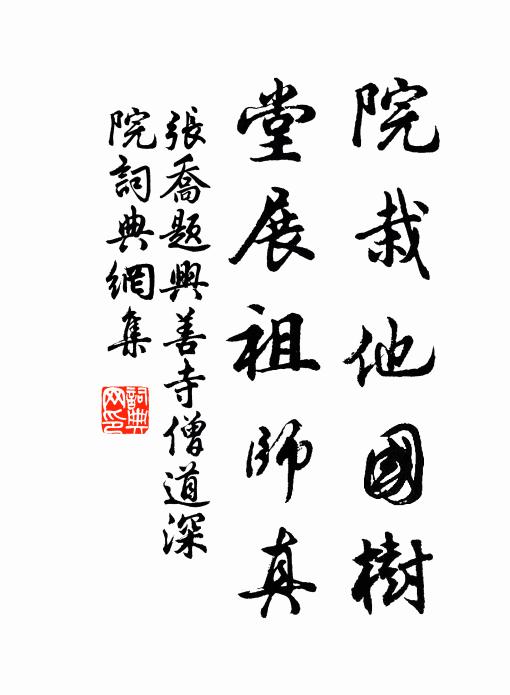 院栽他國樹
堂展祖師真
張喬題興善寺僧道深
院詞典網集
詞典网印